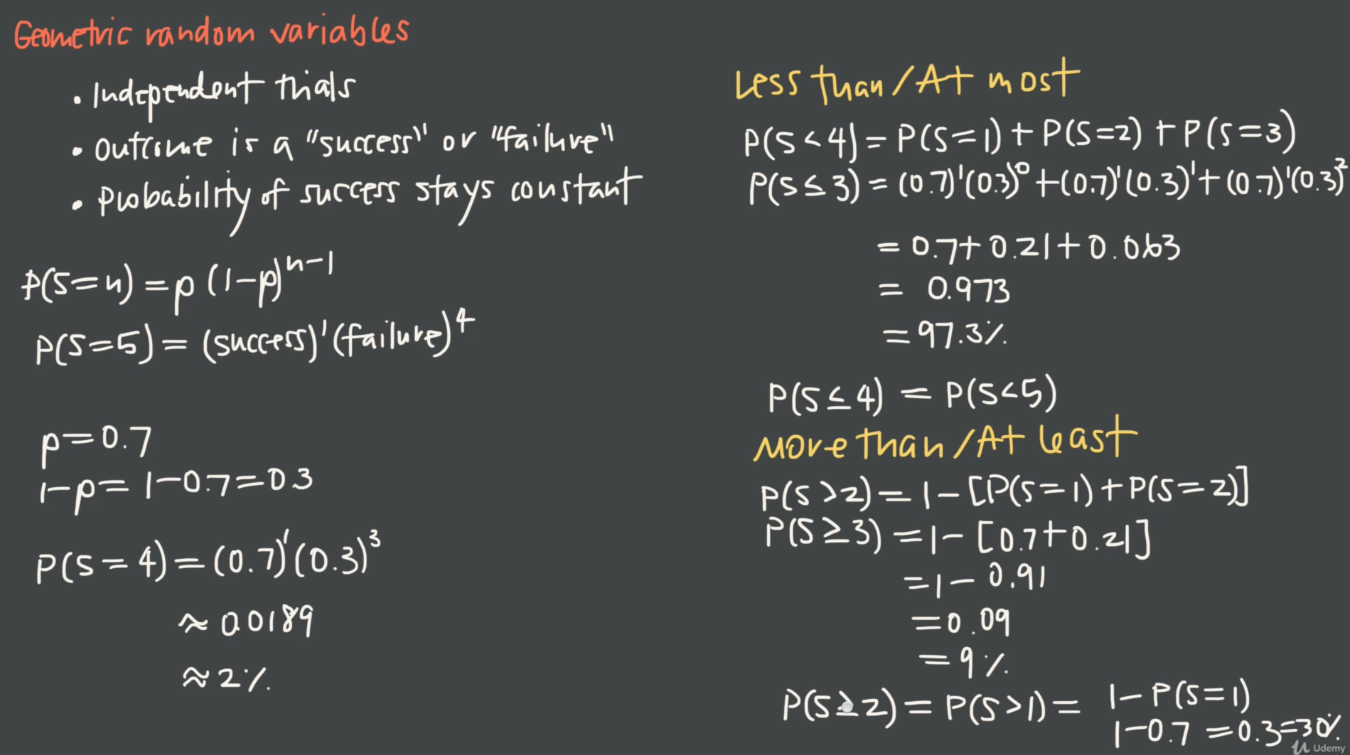 Geometric random variables
• Independent trials
• Outcome is a "success" or "failure"
• Probability of success stays constant
P(S=n) = p (1-p)ⁿ⁻¹
P(S=5) = (success)¹(failure)⁴
p=0.7
1-p = 1-0.7=0.3
P(S=4) = (0.7)¹(0.3)³
≈ 0.0189
≈ 2%
Less than/At most
P(S<4) = P(S=1) + P(S=2) + P(S=3)
P(S≤3) = (0.7)¹(0.3)⁰ + (0.7)¹(0.3)¹ + (0.7)¹(0.3)²
= 0.7+0.21+0.063
= 0.973
= 97.3%
P(S≤4) = P(S<5)
More than/At least
P(S>2) = 1-[P(S=1)+P(S=2)]
P(S≥3) = 1-[0.7+0.21]
= 1-0.91
= 0.09
= 9%
P(S≥2) = P(S>1) = 1-P(S=1)
1-0.7 = 0.3=30%
Udemy